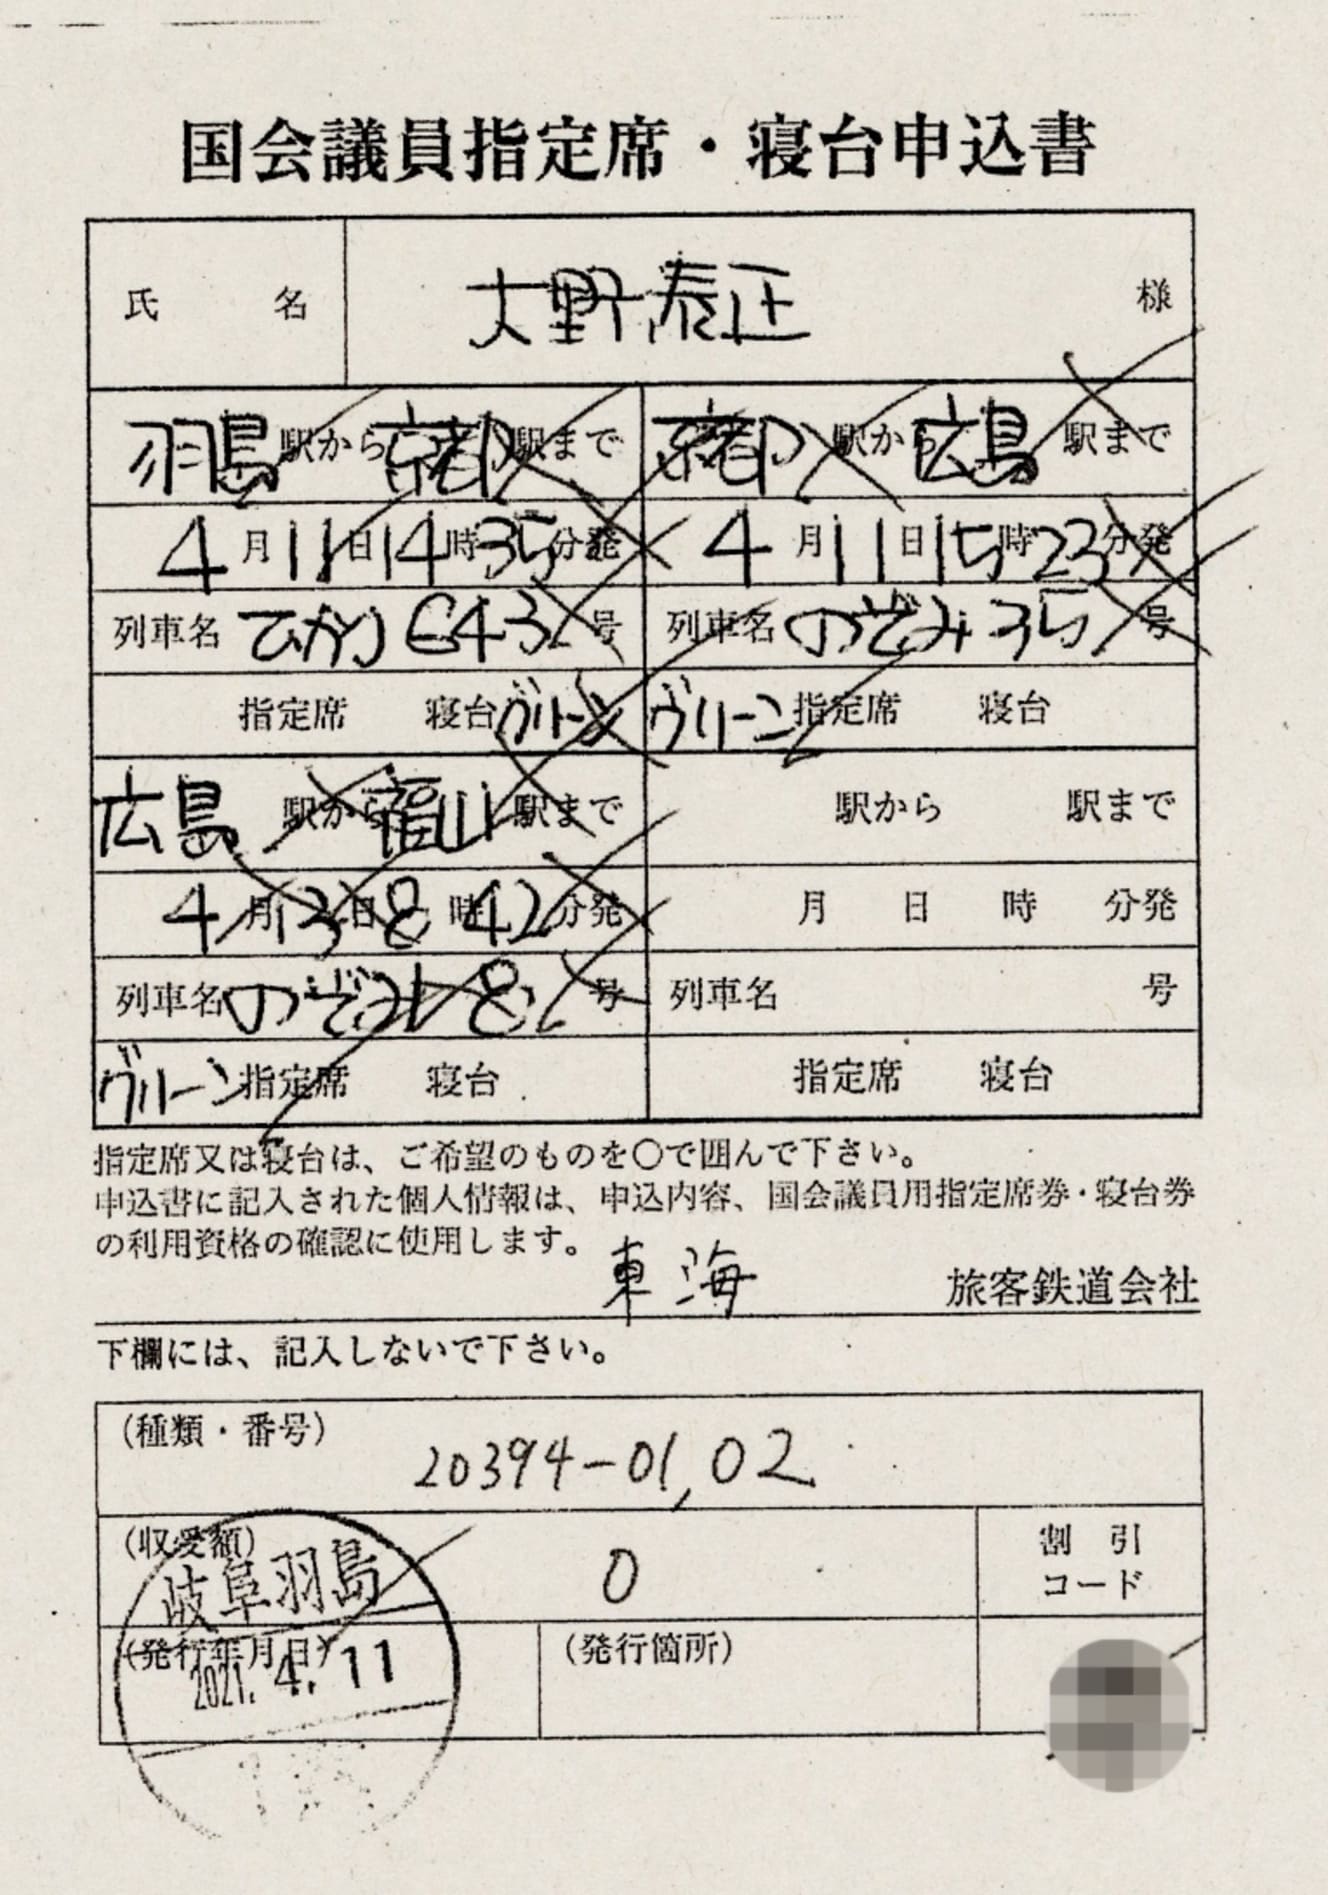 国会議員指定席・寝台申込書
氏名 大野泰正 様
羽島駅から京都駅まで
4月11日14時35分発
列車名 ひかり643号
指定席 寝台 グリーン
京都駅から広島駅まで
4月11日15時23分発
列車名 のぞみ35号
グリーン 指定席 寝台
広島駅から福山駅まで
4月13日8時42分発
列車名 のぞみ82号
グリーン 指定席 寝台
駅から 駅まで
月 日 時 分発
列車名 号
指定席 寝台
指定席又は寝台は、ご希望のものを○で囲んで下さい。
申込書に記入された個人情報は、申込内容、国会議員用指定席券・寝台券
の利用資格の確認に使用します。
東海 旅客鉄道会社
下欄には、記入しないで下さい。
(種類・番号)
20394-01,02
(収受額)
0
割引
コード
岐阜羽島
(発行年月日)
2021.4.11
(発行箇所)